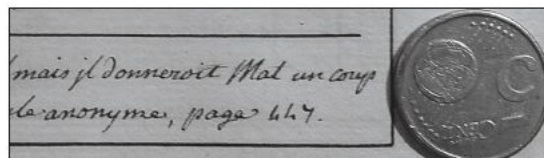 mais jl donneroit Mat un coup
le anonyme, page 447.
CENT